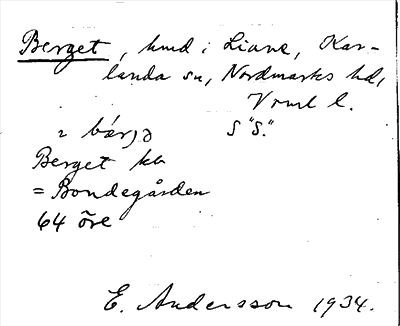 Berget, hmd i Liane, Kar-
landa sn, Nordmarks hd,
Vrml l.
S "S."
Berget kb
= Bondegården
64 öre
E. Andersson 1934.